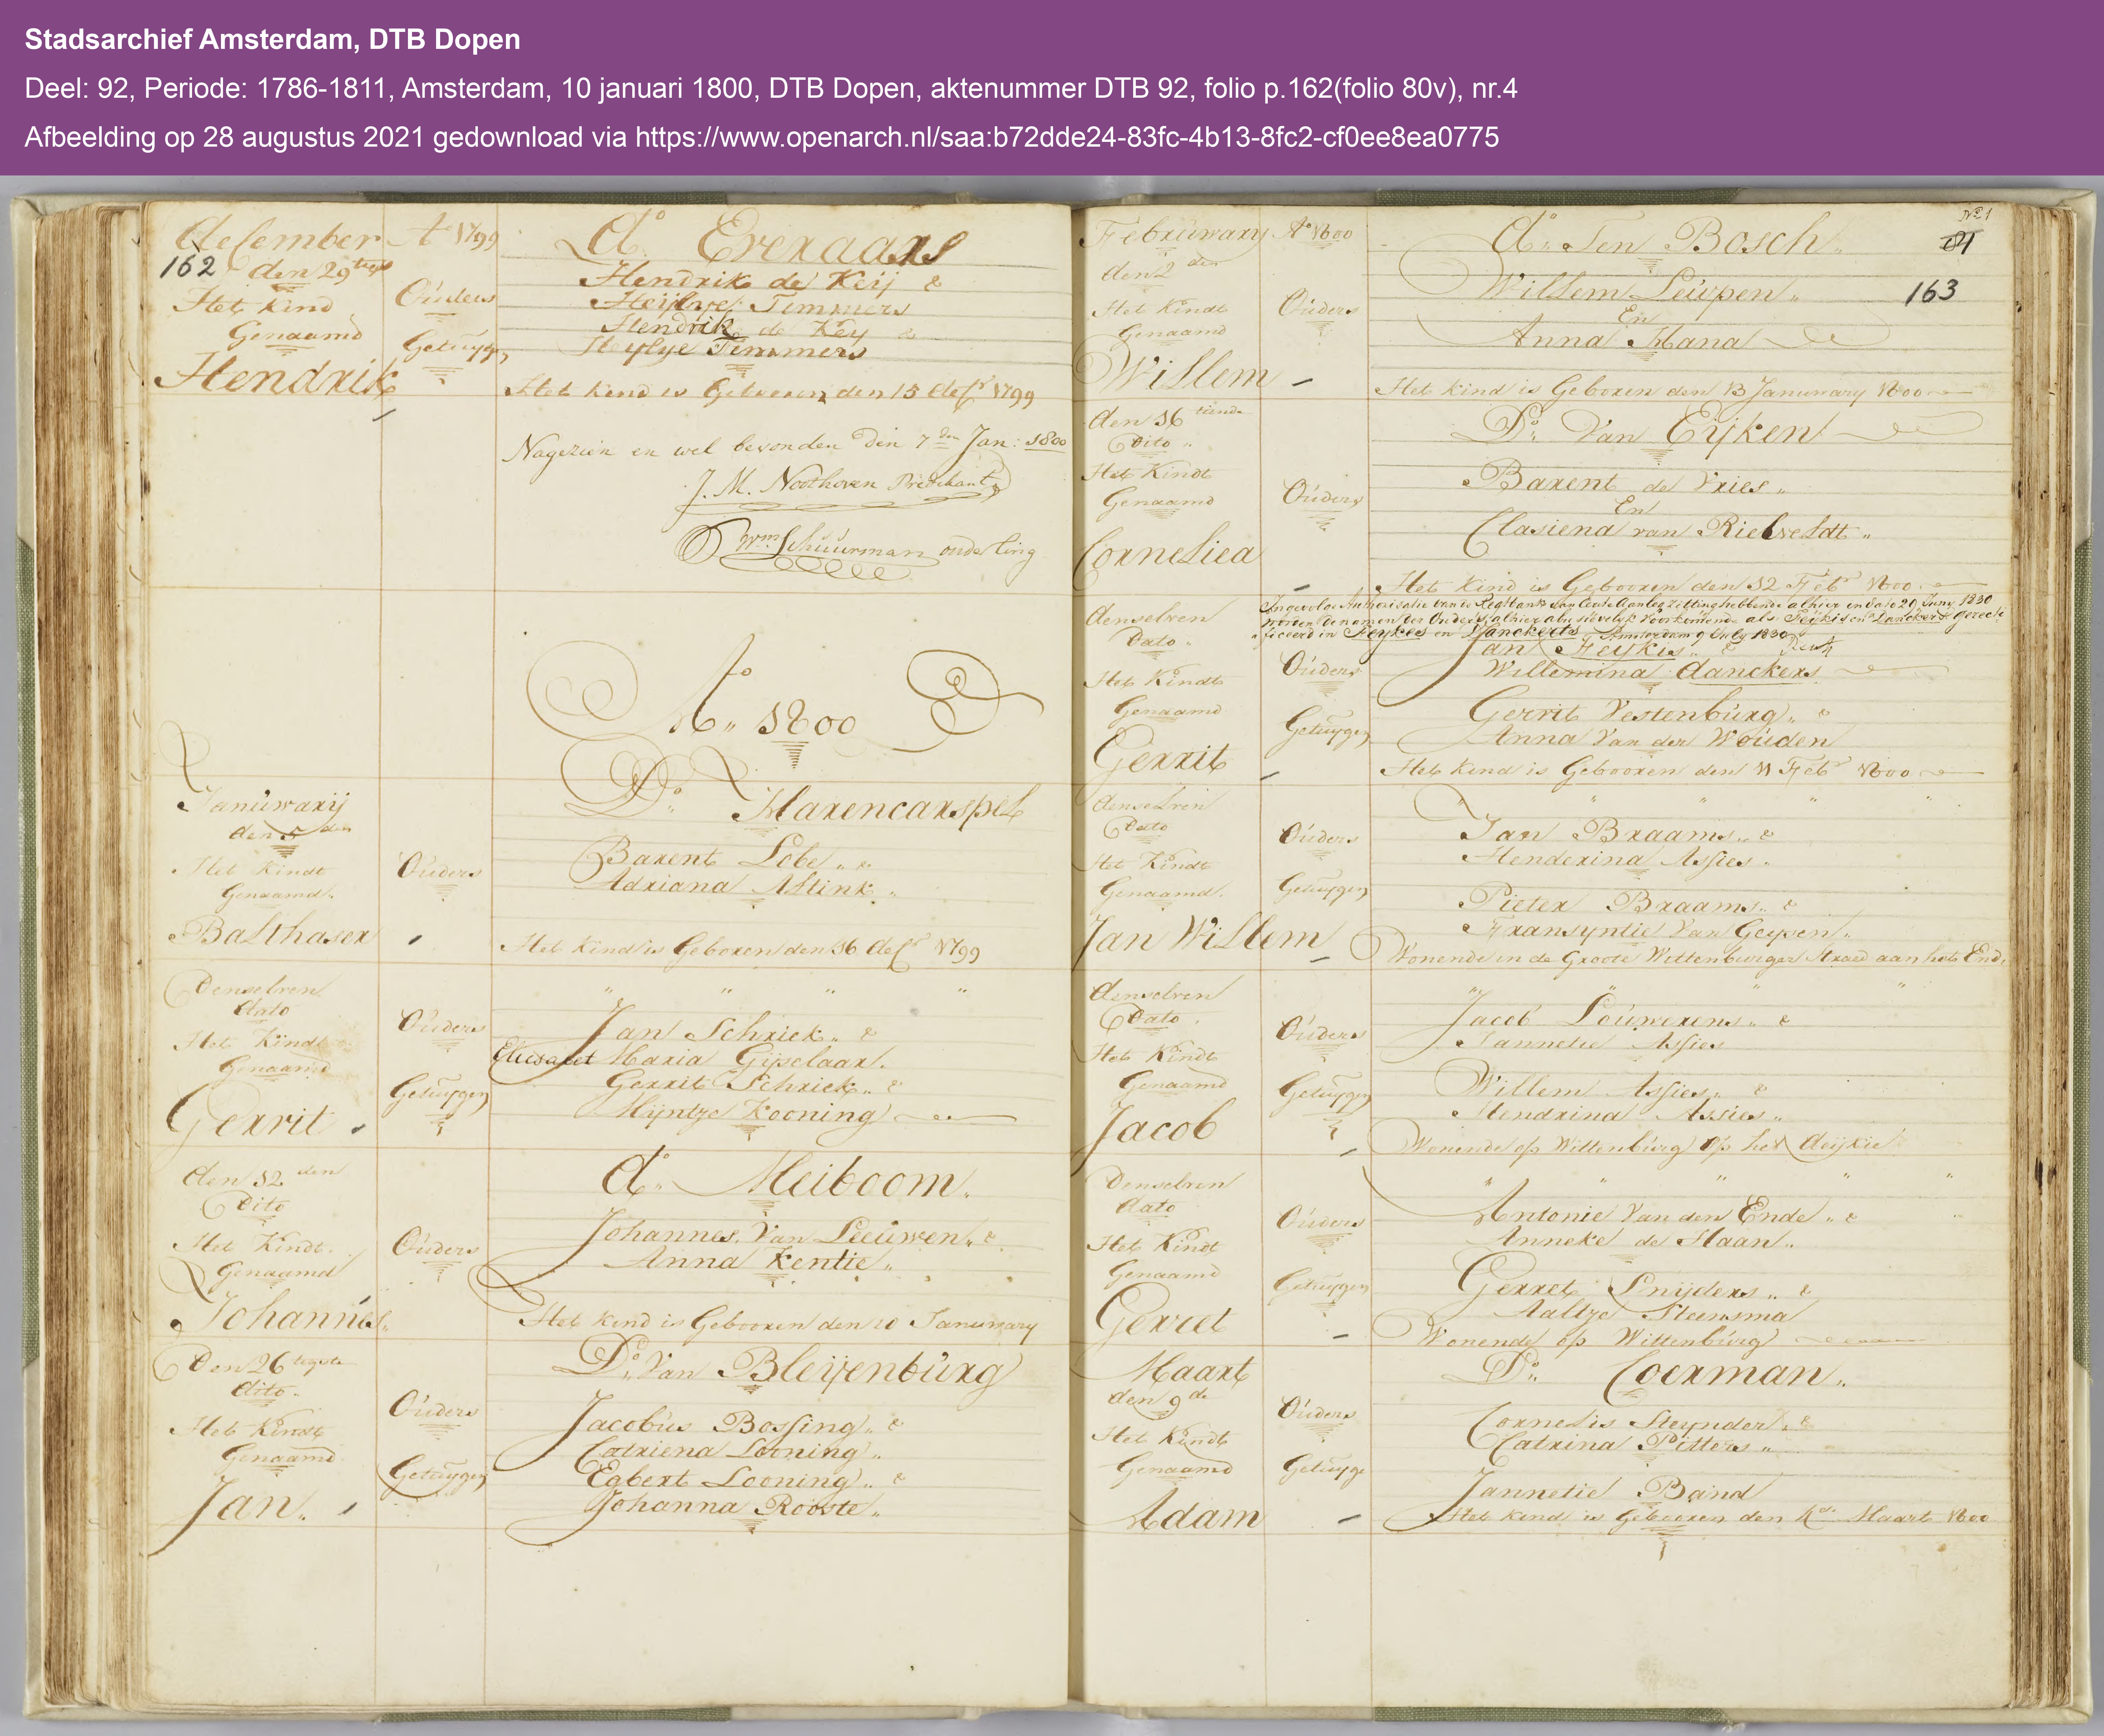 Stadsarchief Amsterdam, DTB Dopen
Deel: 92, Periode: 1786-1811, Amsterdam, 10 januari 1800, DTB Dopen, aktenummer DTB 92, folio p.162(folio 80v), nr.4
Afbeelding op 28 augustus 2021 gedownload via https://www.openarch.nl/saa:b72dde24-83fc-4b13-8fc2-cf0ee8ea0775
december Ao 1799
162 den 29
Het Kind
Genaamd
Hendrik
Ouders
Getuygen
do Everaars
Hendrik de Keij &
Temmers
Hendrik de Key &
Heyltje Temmers
Het kind is Gebooren den 15 decr 1799
Nagezien en wel bevonden den 7den Jan: 1800
J. M. Noothoven Predikant
Wm Schuurman ouderling
Ao 1800
Januwarij
den 5den
Het Kindt
Genaamd
Balthaser
Ouders
Do Harencarspel
Barent Lobe &
Adriana Altink
Het kind is Geboren den 16 decr 1799
Denselven
dato
Het Kindt
Genaamd
Gerrit
Ouders
Getuygen
" " " "
Jan Schriek &
Elisabet Maria Gijselaar
Gerrit Schriek &
Mijntze Kooning
den 12den
Dito
Het Kindt
Genaamd
Johannes
Ouders
do Meiboom
Johannes Van Leeuwen &
Anna Kentie
Het kind is Gebooren den 10 Januwary
Den 26
dito
Het Kindt
Genaamd
Jan
Ouders
Getuygen
Do Van Bleyenburg
Jacobus Bossing &
Catriena Looning
Egbert Looning &
Johanna Rooste
Februwary Ao 1800
den 2den
Het Kindt
Genaamd
Willem
Ouders
No 1
81
do Ten Bosch
163
Willem Leuvpen
En
Anna Mana
Het kind is Geboren den 13 Januwary 1800
den 16
Dito
Het Kindt
Genaamd
Corneliea
Ouders
Do Van Eyken
Barent de Vries
En
Clasiena van Rietveldt
Het kind is Gebooren den 12 Febr 1800
denselven
Dato
Het Kindt
Genaamd
Gerrit
Ouders
Getuygen
Ingevolge Authorisatie van de Regtbank van Eerste Aanleg zitting hebbende alhier in dato 29 Juny 1830
worden de namen der Ouders alhier voorkomende als Feykis en Danckers gerecti
ficeerd in Feykes en Danckerts Amsterdam 9 July 1830
Jan Feykis &
Willemina danckers
Gerrit Vestenburg &
Anna Van der Wouden
Het kind is Gebooren den 11 Febr 1800
denselven
Dato
Het Kindt
Genaamd
Jan Willem
Ouders
Getuygen
" " " "
Jan Braams &
Henderina Assies
Pieter Braams &
Fransyntie Van Geysen
Wonende in de Groote Wittenburger Straed aan het End
denselven
Dato
Het Kindt
Genaamd
Jacob
Ouders
Getuygen
" " " "
Jacob Louwerens &
Jannetie Assies
Willem Assies &
Hendrina Assies
Wonende op Wittenburg op het deijkie
Denselven
dato
Het Kindt
Genaamd
Gerret
Ouders
Getuygen
" " " " "
Antonie Van den Ende &
Anneke de Haan
Gerret Snijders &
Aaltze Steensma
Wonende op Wittenburg
Maart
den 9de
Het Kindt
Genaamd
Adam
Ouders
Getuyge
Do Coerman
Cornelis Steynder &
Catrina Pitters
Jannetie Band
Het kind is Gebooren den Maart 1800